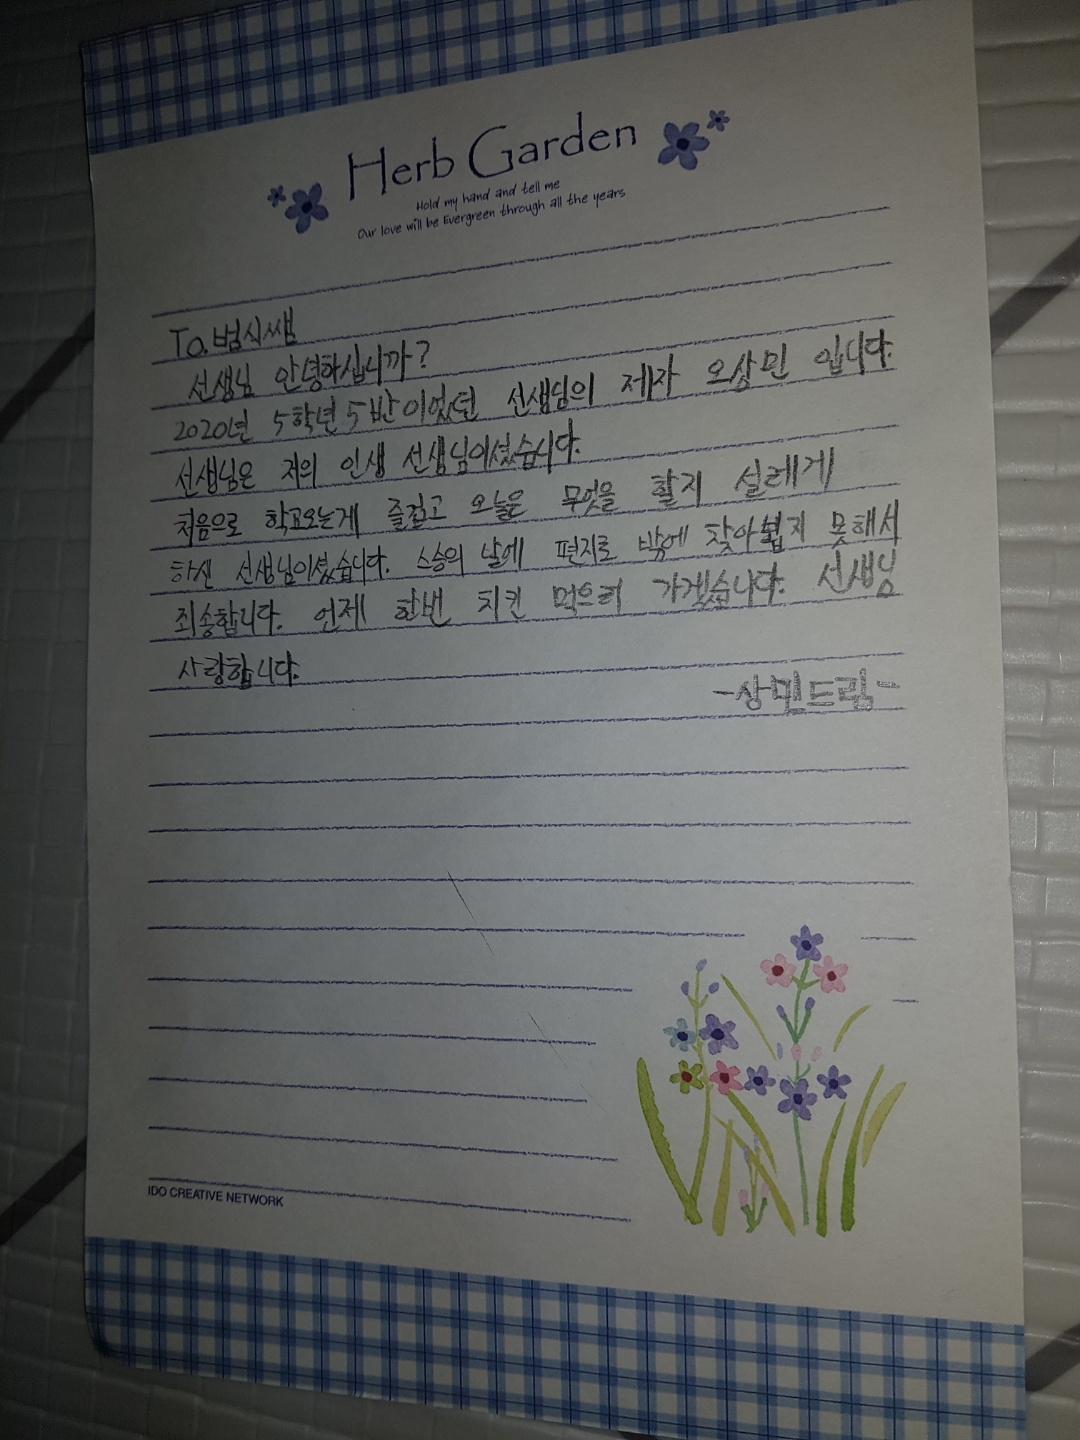 Herb Garden
Hold my hand and tell me
Our love will be Evergreen through all the years
To.범식쌤
선생님 안녕하십니까?
2020년 5학년 5반이었던 선생님의 제자 오상민 입니다.
선생님은 저의 인생 선생님이셨습니다.
처음으로 학교오는게 즐겁고 오늘은 무엇을 할지 설레게
하신 선생님이셨습니다. 스승의 날에 편지로 밖에 찾아뵙지 못해서
죄송합니다. 언제 한번 치킨 먹으러 가겠습니다. 선생님
사랑합니다.
-상민드림-
IDO CREATIVE NETWORK